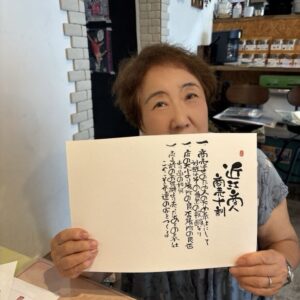 近江商人
商売十訓
一 商売は世の為人の為の奉仕にして
利益はその当然の報酬なり
一 店の大小よりも場所の良否場所の良否
よりも品の如何
一 売る前のお世辞より売った後の奉仕
これこそ永遠の客をつくる